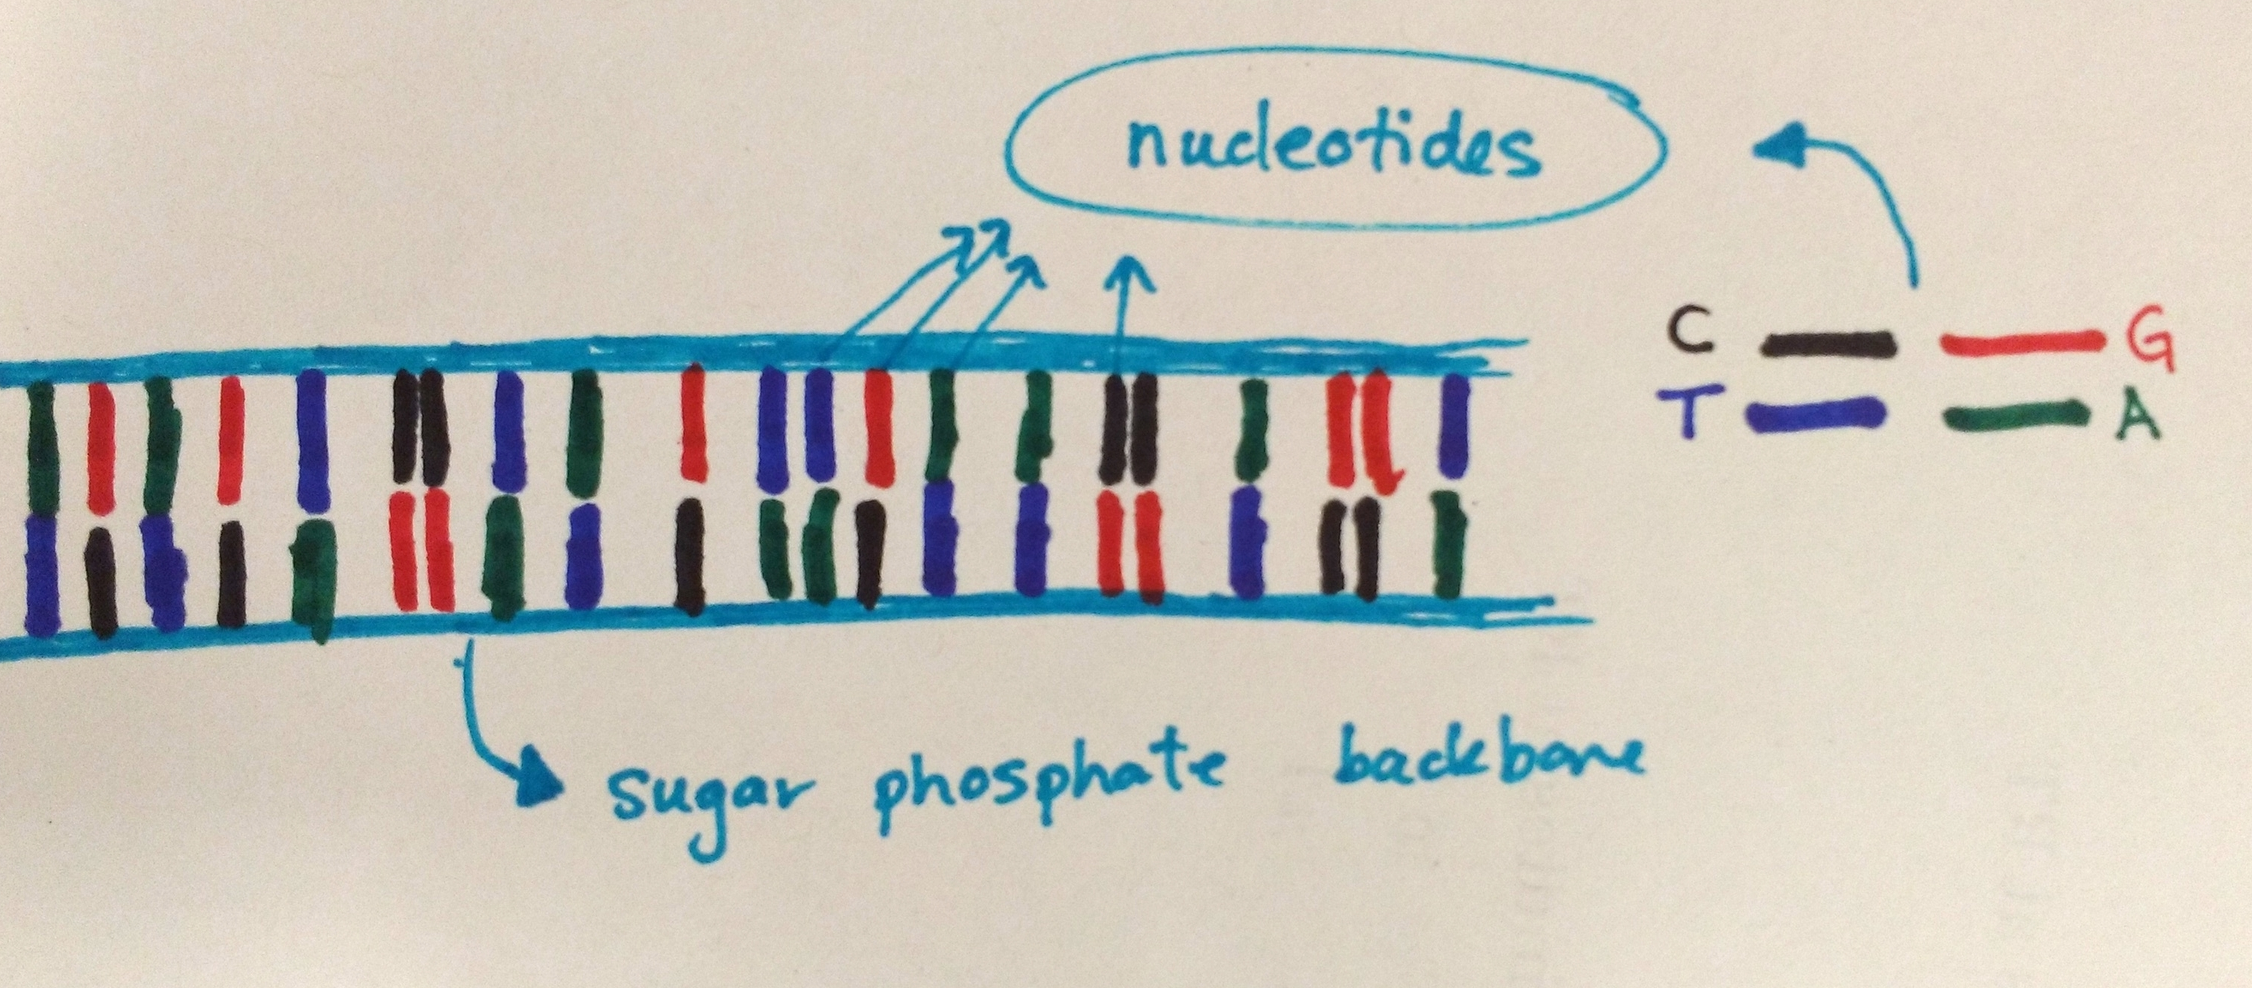 nucleotides
C G
T A
sugar phosphate backbone